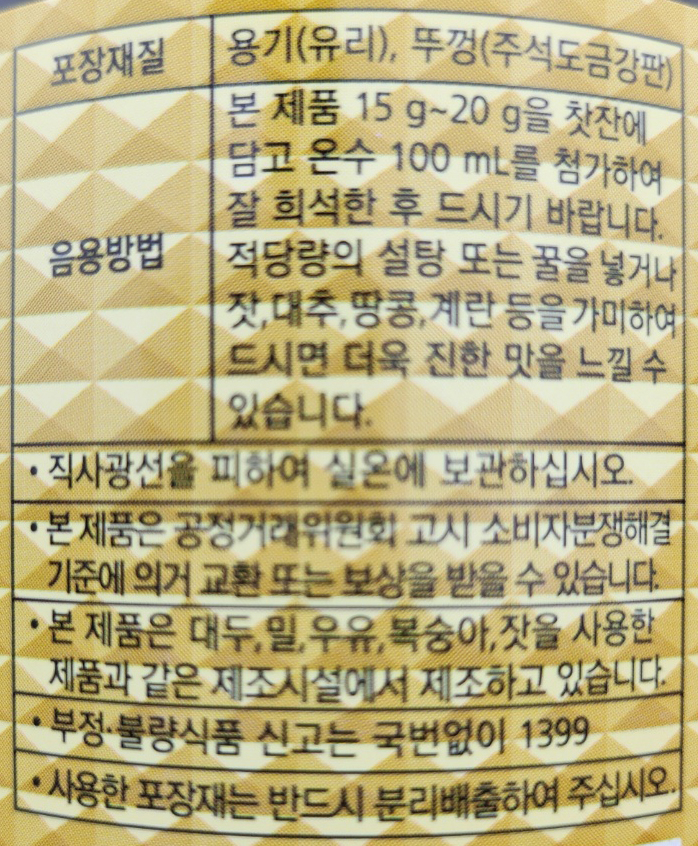 포장재질 용기(유리), 뚜껑(주석도금강판)
음용방법 본 제품 15 g~20 g을 찻잔에
담고 온수 100 mL를 첨가하여
잘 희석한 후 드시기 바랍니다.
적당량의 설탕 또는 꿀을 넣거나
잣,대추,땅콩,계란 등을 가미하여
드시면 더욱 진한 맛을 느낄 수
있습니다.
• 직사광선을 피하여 실온에 보관하십시오.
• 본 제품은 공정거래위원회 고시 소비자분쟁해결
기준에 의거 교환 또는 보상을 받을 수 있습니다.
• 본 제품은 대두,밀,우유,복숭아,잣을 사용한
제품과 같은 제조시설에서 제조하고 있습니다.
• 부정·불량식품 신고는 국번없이 1399
• 사용한 포장재는 반드시 분리배출하여 주십시오.